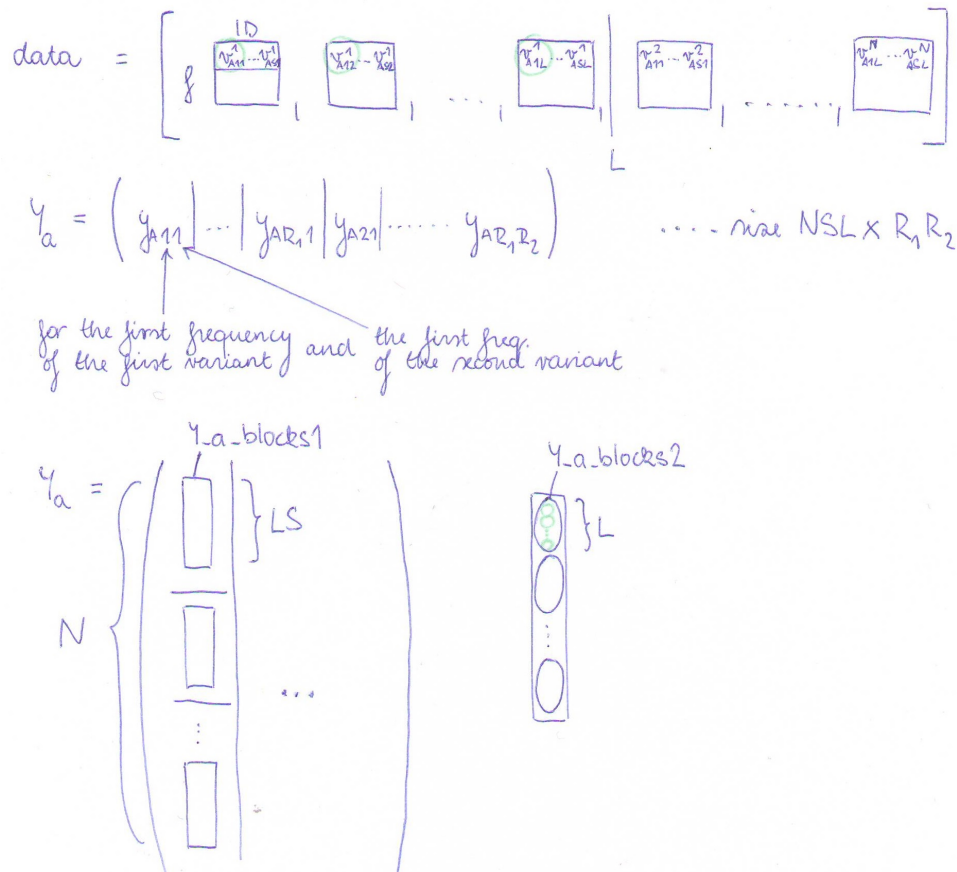 data = [ f ID v¹_A11 ... v¹_AS1 , v¹_A12 ... v¹_AS2 , ...., v¹_A1L ... v¹_ASL , | L v²_A11 ... v²_AS1 , ......, v^N_A1L ... v^N_ASL ]
Y_a = ( y_A11 | ... | y_AR₁1 | y_A21 | ...... y_AR₁R₂ ) .... size NSL x R₁R₂
for the first frequency of the first variant and the first freq. of the second variant
Y_a_blocks1
Y_a_blocks2
Y_a =
} LS
} L
N
...